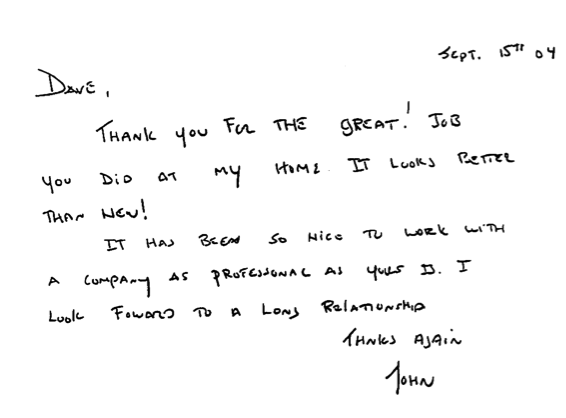 Sept. 15th 04
Dave,
Thank you for the great! Job
you did at my home. It looks better
than new!
It has been so nice to work with
a company as professional as yours is. I
look foward to a long relationship
Thnks again
John